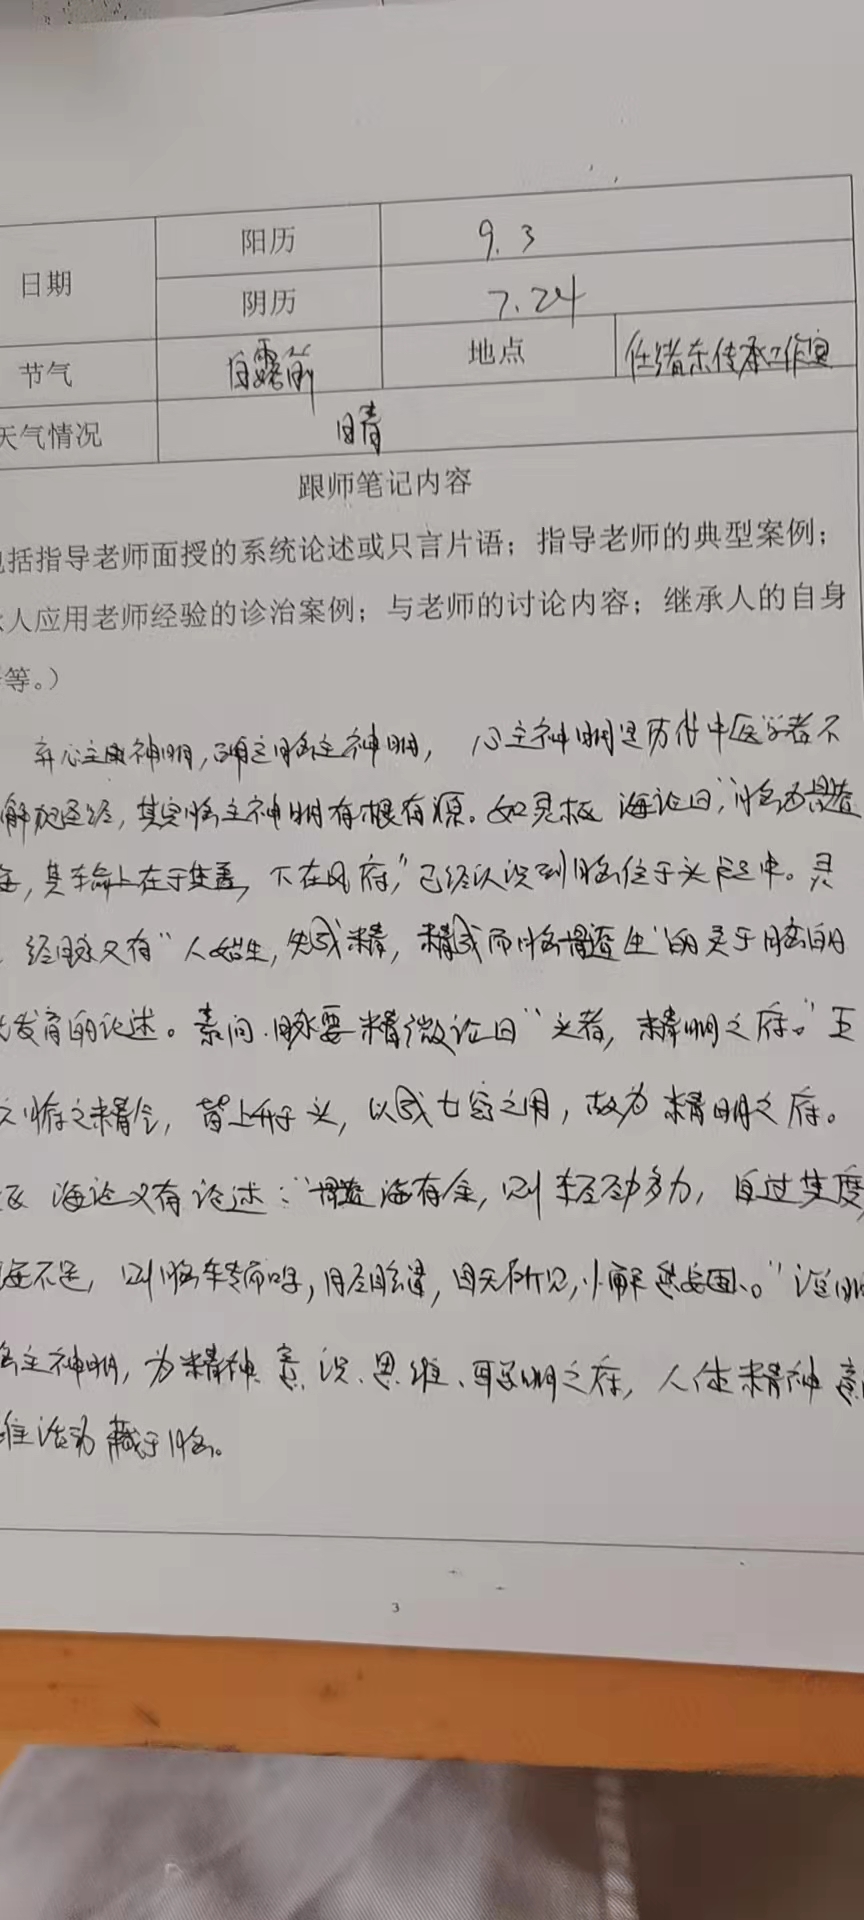 日期 阳历 9.3
阴历 7.24
节气 白露前 地点 任绪东传承工作室
天气情况 晴
跟师笔记内容
包括指导老师面授的系统论述或只言片语；指导老师的典型案例；
人应用老师经验的诊治案例；与老师的讨论内容；继承人的自身
等。）
弃心主神明，确立脑主神明，心主神明是历代中医学者不
解，其实脑主神明有根有源。如灵枢 海论曰，"脑为髓
海，其输上在于其盖，下在风府，"已经认识到脑位于头中。灵
经脉又有"人始生，先成精，精成而脑髓生"的关于脑的
发育的论述。素问.脉要精微论曰"头者，精明之府。"王
之精气，皆上升于头，以成七窍之用，故为精明之府。
枢 海论又有论述："髓海有余，则轻劲多力，自过其度，
海不足，则脑转而鸣，胫眩冒，目无所见，懈怠安卧。"证明
脑主神明，为精神、意识、思维、聪明之府，人体精神意
维活动藏于脑。
3